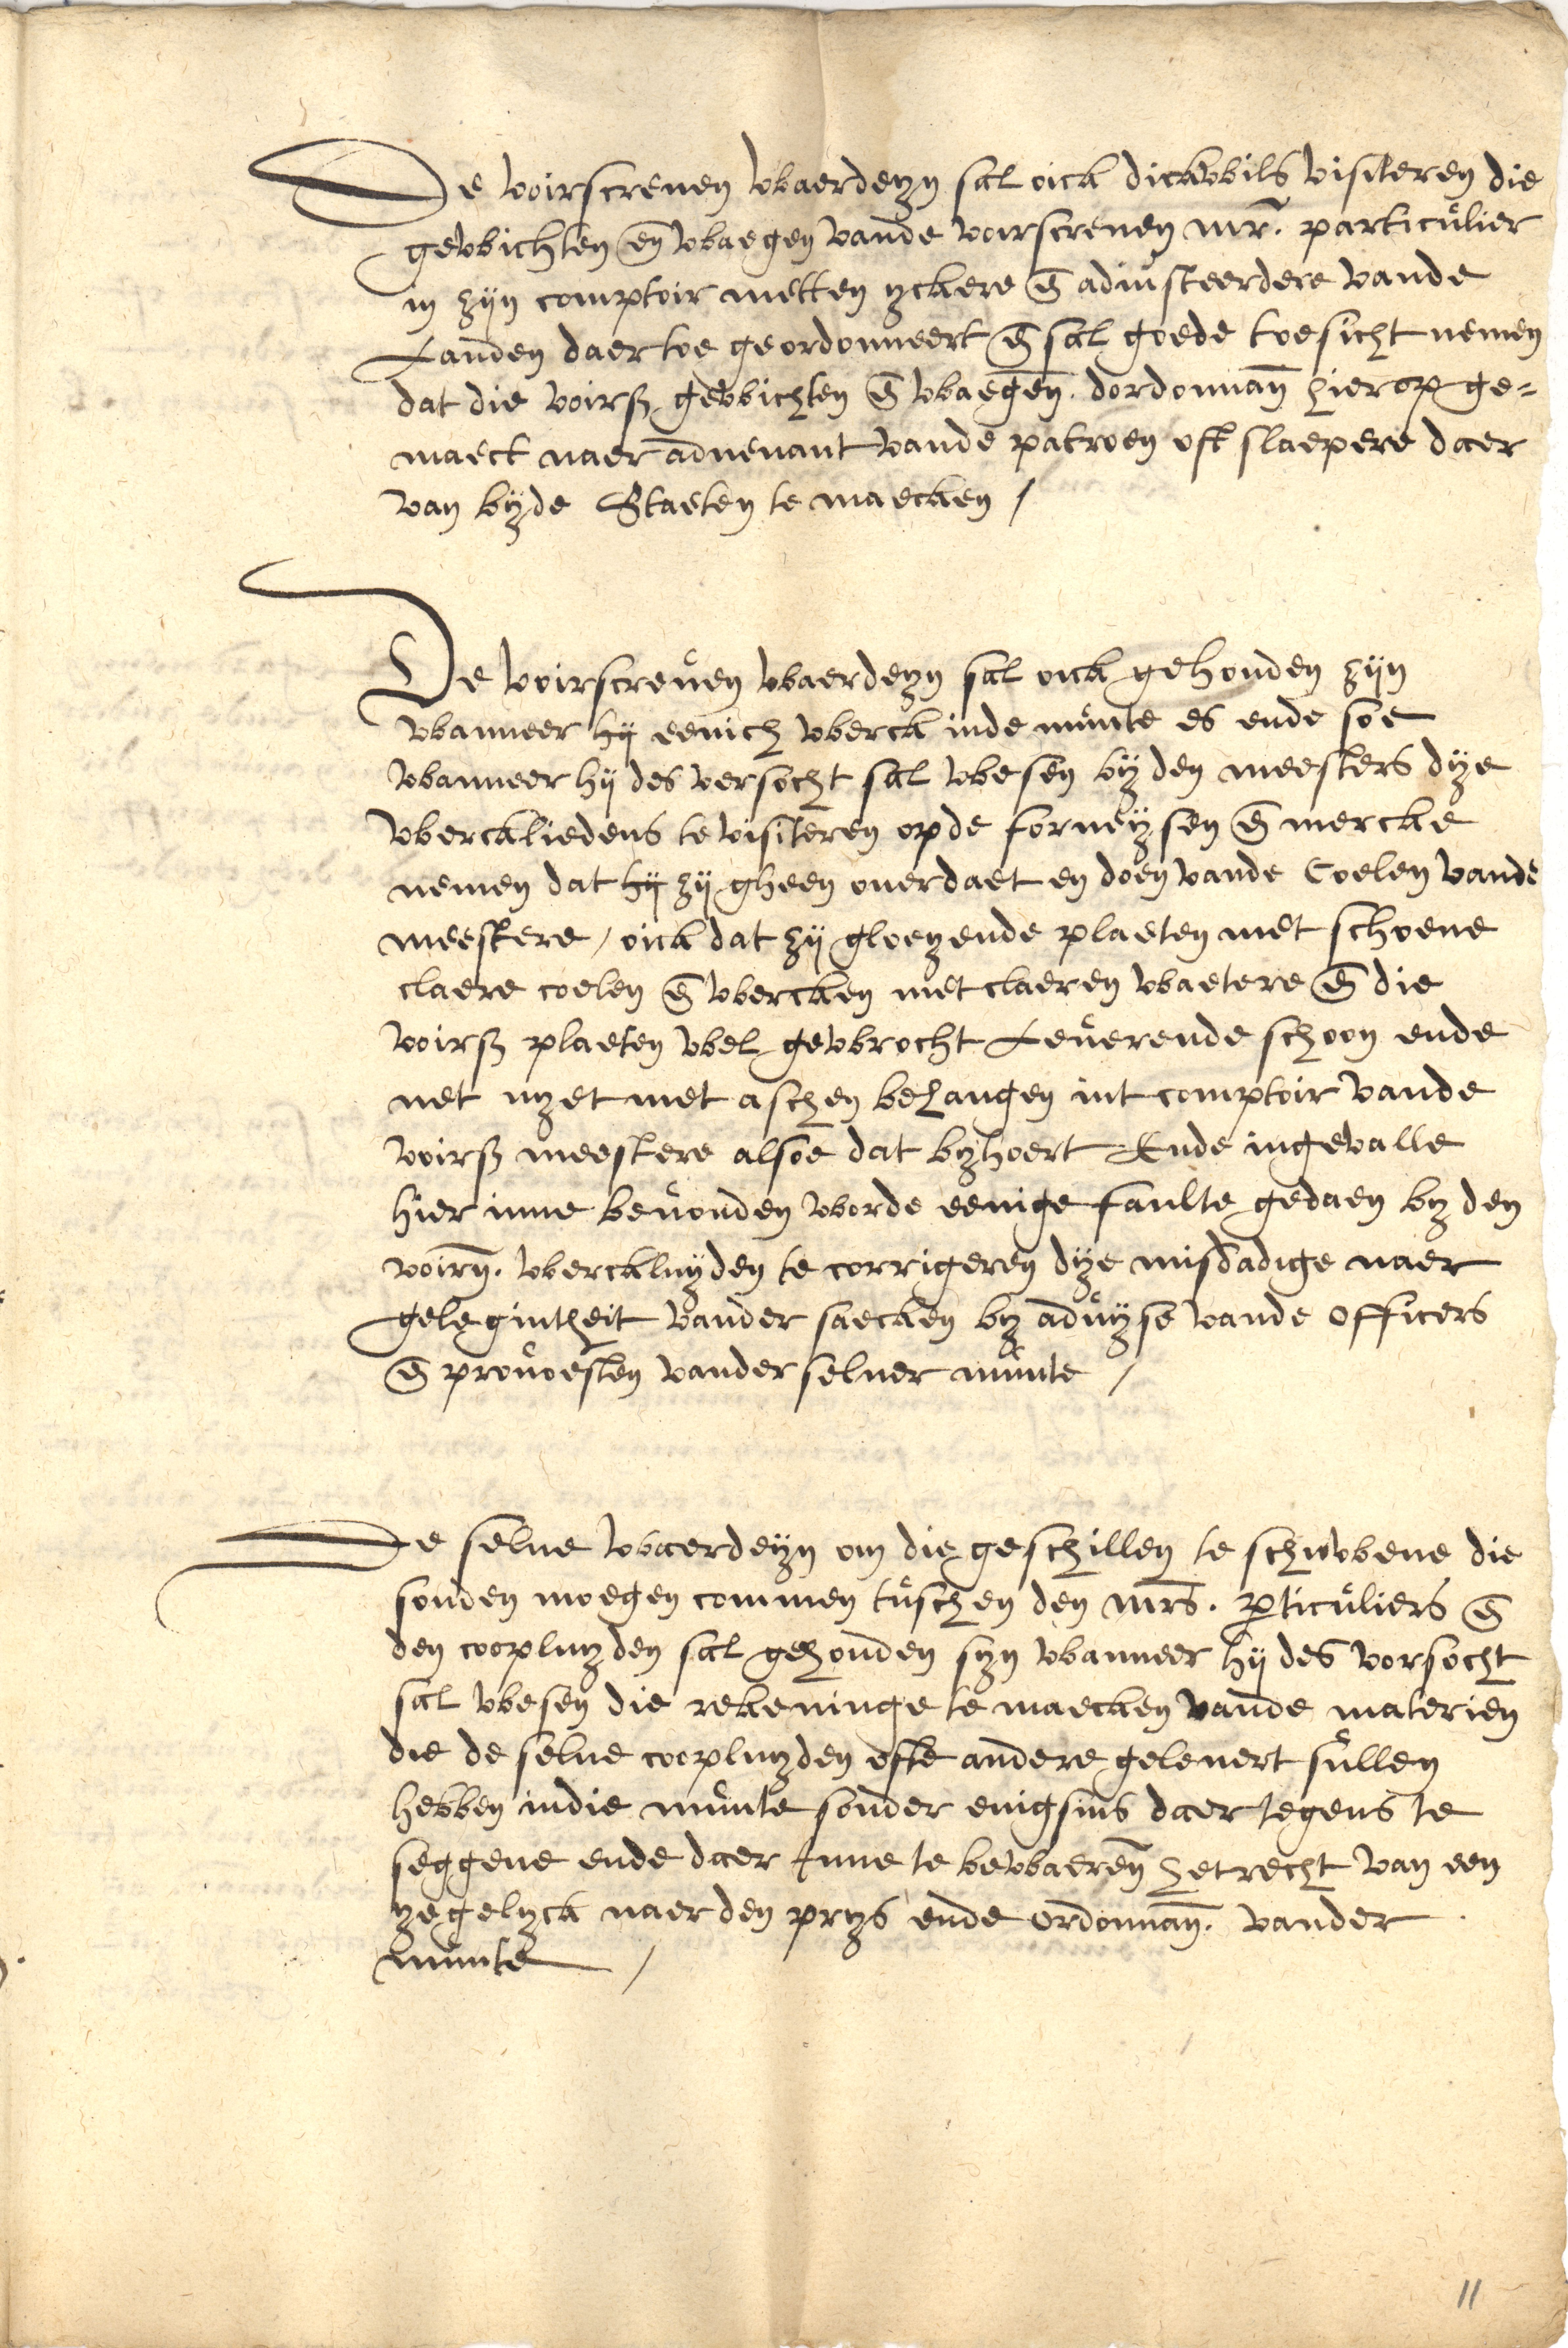 De voirscreuen wbaerdeyn sal oick dickwbils visiteren die
gewbichten en̄ wbaegen vande voirscreuen mr̄. particulier
in zijn comptoir metten yckere en̄ adiusteerdere vande
Landen daer toe geordonneert en̄ sal goede toesicht nemen
dat die voirß gewbichten en̄ wbaegen̄. dordonnan̄ hierop ge=
maect naer aduenant vande patroen oft slaepere daer
van bijde Staeten te maecken /
De voirscreuen wbaerdeyn sal oick gehouden zijn
wbanneer hij eenich wberck inde munte es ende soe
wbanneer hij des versocht sal wbesen bij den meesters dije
wberckliedens te visiteren opde forneijsen en̄ mercke
nemen dat hij zij gheen ouerdaet en doen vande Coelen vande
meestere / oick dat zij gloeyende plaeten met schoene
claere coelen en̄ wbercken met claeren wbaetere en̄ die
voirß plaeten wbel gewbrocht Leuerende schoon ende
net nyet met asschen behangen int comptoir vande
voirß meestere alsoe dat byhoert Ende ingevalle
hier inne beuonden wborde eenige faulte gedaen by den
voirn̄. wberckluyden te corrigeren dije misdadige naer
gelegintheit vander saecken by aduyse vande officers
en̄ prouoesten vander seluer munte /
De selue wbaerdeijn om die geschillen te schuwbene die
souden moegen commen tusschen den mr̄s. p̄ticuliers en̄
den coopluyden sal gehouden syn wbanneer hij des vorsocht
sal wbesen die rekeninge te maecken vande materien
die de selue coopluyden ofte andere geleuert sullen
hebben indie munte sonder enigsins daer tegens te
seggene ende daer Inne te bewbaeren̄ het recht van een
yegelyck naer den prys ende ordonnan̄. vander
munte /
11